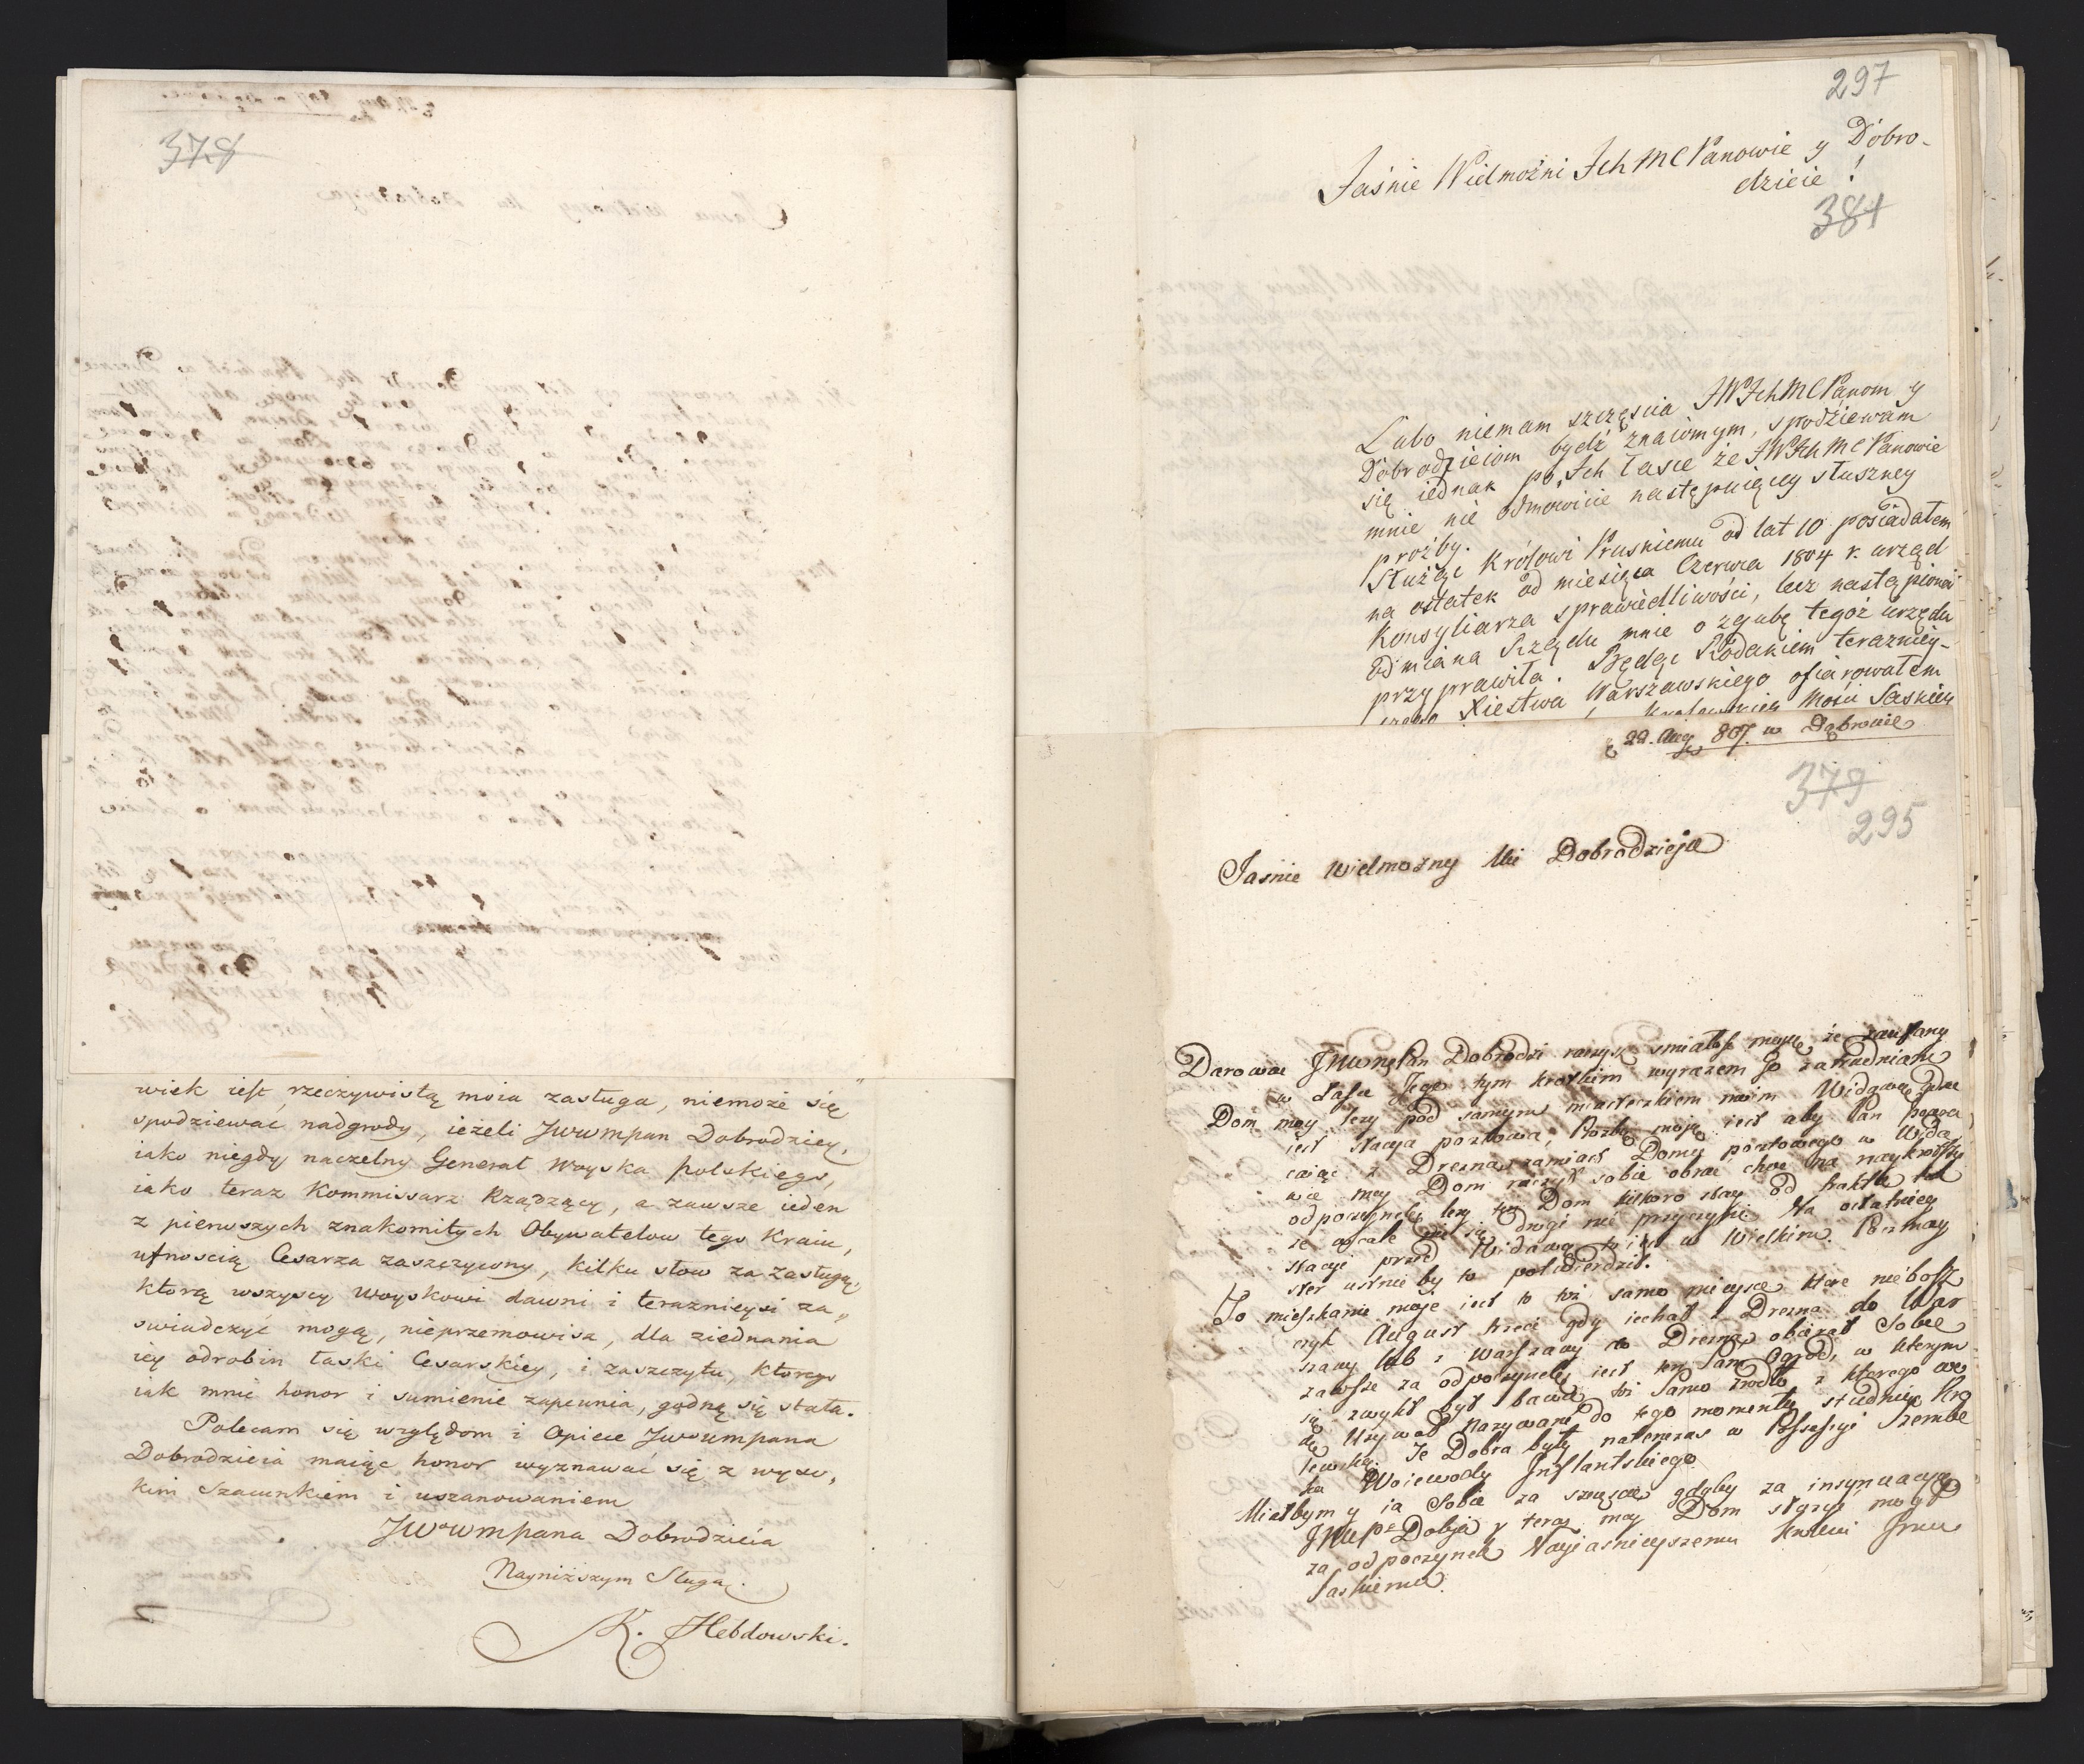 378
wiek iest rzeczywistą moia zasługa, niemoże się
spodziewać nadgrody, ieżeli JWWmpan Dobrodziey,
iako niegdy naczelny Generał Woyska polskiego,
iako teraz Kommissarz Rządzący, a zawsze ieden
z pierwszych znakomitych Obywatelow tego Kraiu,
ufnoscią Cesarza zaszczycony, kilku słow za zasługą,
ktorą wszyscy woyskowi dawni i teraznieysi za„
swiadczyć mogą, nieprzemowisz, dla ziednania
iey odrobin łaski Cesarskiey, i zaszczytu, ktorego
iak mnie honor i sumienie zapewnia, godną się stała.
Polecam się względom i Opiece JWWmpana
Dobrodzieia maiąc honor wyznawać się z wyso,
kim Szacunkiem i uszanowaniem
JWWmpana Dobrodzieia
Nayniższym Sługą.
K. Hebdowski.
297
Jaśnie Wielmożni Ich MC Panowie y Dobro-
dzieie!
381
Lubo niemam szczęścia JW Ich MC Panom y
Dobrodzieiom bydź znaiomym, spodziewam
się iednak po Ich łasce że JW Ich MC Panowie
mnie nie odmowicie następuiącey słuszney
prożby.
Służąc Królowi Pruskiemu od lat 10 posiadałem
na ostatek od miesiąca Czerwca 1804 r. urząd
Konsyliarza sprawiedliwości, lecz nastąpiona
Odmiana Rządu mnie o zgubę tegoż urzędu
przyprawiła. Będąc Rodakiem teraźniey-
szego Xiestwa Warszawskiego ofiarowałem
Krolewskiey Mosci Saskiey
22. Aug 807. w Dąbrowie
379
295
Jasnie Wielmożny Mci Dobrodzieju
Darować JWWmPan Dobrodzi raczysz smiałość moyę że zaufany
w Łasce Jego tym krotkim wyrazem Go zatrudniam
Dom moy leży pod samym miasteczkiem moim Widawą gdzie
iest stacyja pocztowa, Prozba moja iest aby Pan powra
caiąc z Drezna zamiast Domu pocztowego w Wida
wie moy Dom raczył sobie obrać choć na naykrotszy
odpoczynek, leży ten Dom kilkoro stay od traktu tak
że wcale się drogi nie przyczyni. Na ostatniey
stacyi przed Widawą to iest w Wielkim Poczmay
ster ustnie by to potwierdził.
To mieszkanie moje iest to toż samo mieysce ktore niebosz
czyk August trzeci gdy iechał z Drezna do War
szawy lub z Warszawy do Drezna obierał Sobie
zawsze za odpoczynek, iest ten Sam Ogrod, w ktorym
się zwykł był bawić, toż Samo zrodło z ktorego wo
dy Używał nazywane do tego momentu studnią Kro
lewską. Te Dobra były natenczas w Possessyi Szembe
ka Woiewody Inflantskiego
Miałbym y ia Sobie za szczęscie gdyby za insynuacyą
JWWPa Dobja y teraz moy Dom służyć mogł
za odpoczynek Nayiasnieyszemu Krolowi Jmci
Saskiemu.